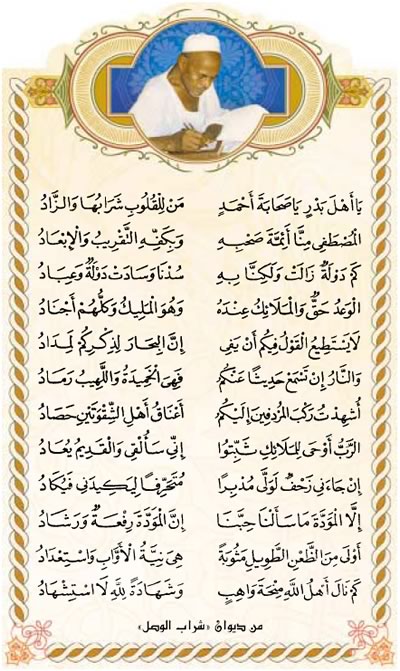 يَا أَهْلَ بَدْرٍ يَا صَحَابَةَ أَحْمَدٍ مَنْ لِلْقُلُوبِ شَرَابُهَا وَالزَّادُ
المُصْطَفَى مِنَّا أَئِمَّةَ صَحْبِهِ وَبِكَفِّهِ التَّقْرِيبُ وَالْإِبْعَادُ
كَمْ دَوْلَةٌ زَالَتْ وَلَكِنَّا بِهِ سُدْنَا وَسَادَتْ دَوْلَةٌ وَعِبَادُ
الْوَعْدُ حَقٌّ وَالْمَلَائِكُ عِنْدَهُ وَهُوَ الْمَلِيكُ وَكُلُّهُمْ أَجْنَادُ
لَا يَسْتَطِيعُ الْقَوْلُ فِيكُمْ أَنْ يَفِي إِنَّ الْبِحَارَ لِذِكْرِكُمْ لَمِدَادُ
وَالنَّارُ إِنْ تَسْمَعْ حَدِيثًا عَنْكُمُ فَهِيَ الْخَمِيدَةُ وَاللَّهِيبُ رَمَادُ
أُشْهِدْتُ رَكْبَ الْمُرْدِفِينَ إِلَيْكُمُ أَعْنَاقُ أَهْلِ الشِّقْوَتَيْنِ حَصَادُ
الرَّبُّ أَوْحَى لِلْمَلَائِكِ ثَبِّتُوا إِنِّي سَأُلْقِي وَالْقَدِيمُ يُعَادُ
إِنْ جَاءَنِي زَحْفٌ لَوَلَّى مُدْبِرًا مُتَحَرِّفًا لِيَكِيدَنِي فَيُكَادُ
إِلَّا الْمَوَدَّةَ مَا سَأَلْنَا حِبَّنَا إِنَّ الْمَوَدَّةَ رِفْعَةٌ وَرَشَادُ
أَوْلَى مِنَ الظَّعْنِ الطَّوِيلِ مَثُوبَةً هِيَ نِيَّةُ الْأَوَّابِ وَاسْتِعْدَادُ
كَمْ نَالَ أَهْلُ اللَّهِ مِنْحَةَ وَاهِبٍ وَشَهَادَةً لِلَّهِ لَا اسْتِشْهَادُ
من ديوان «شراب الوصل»